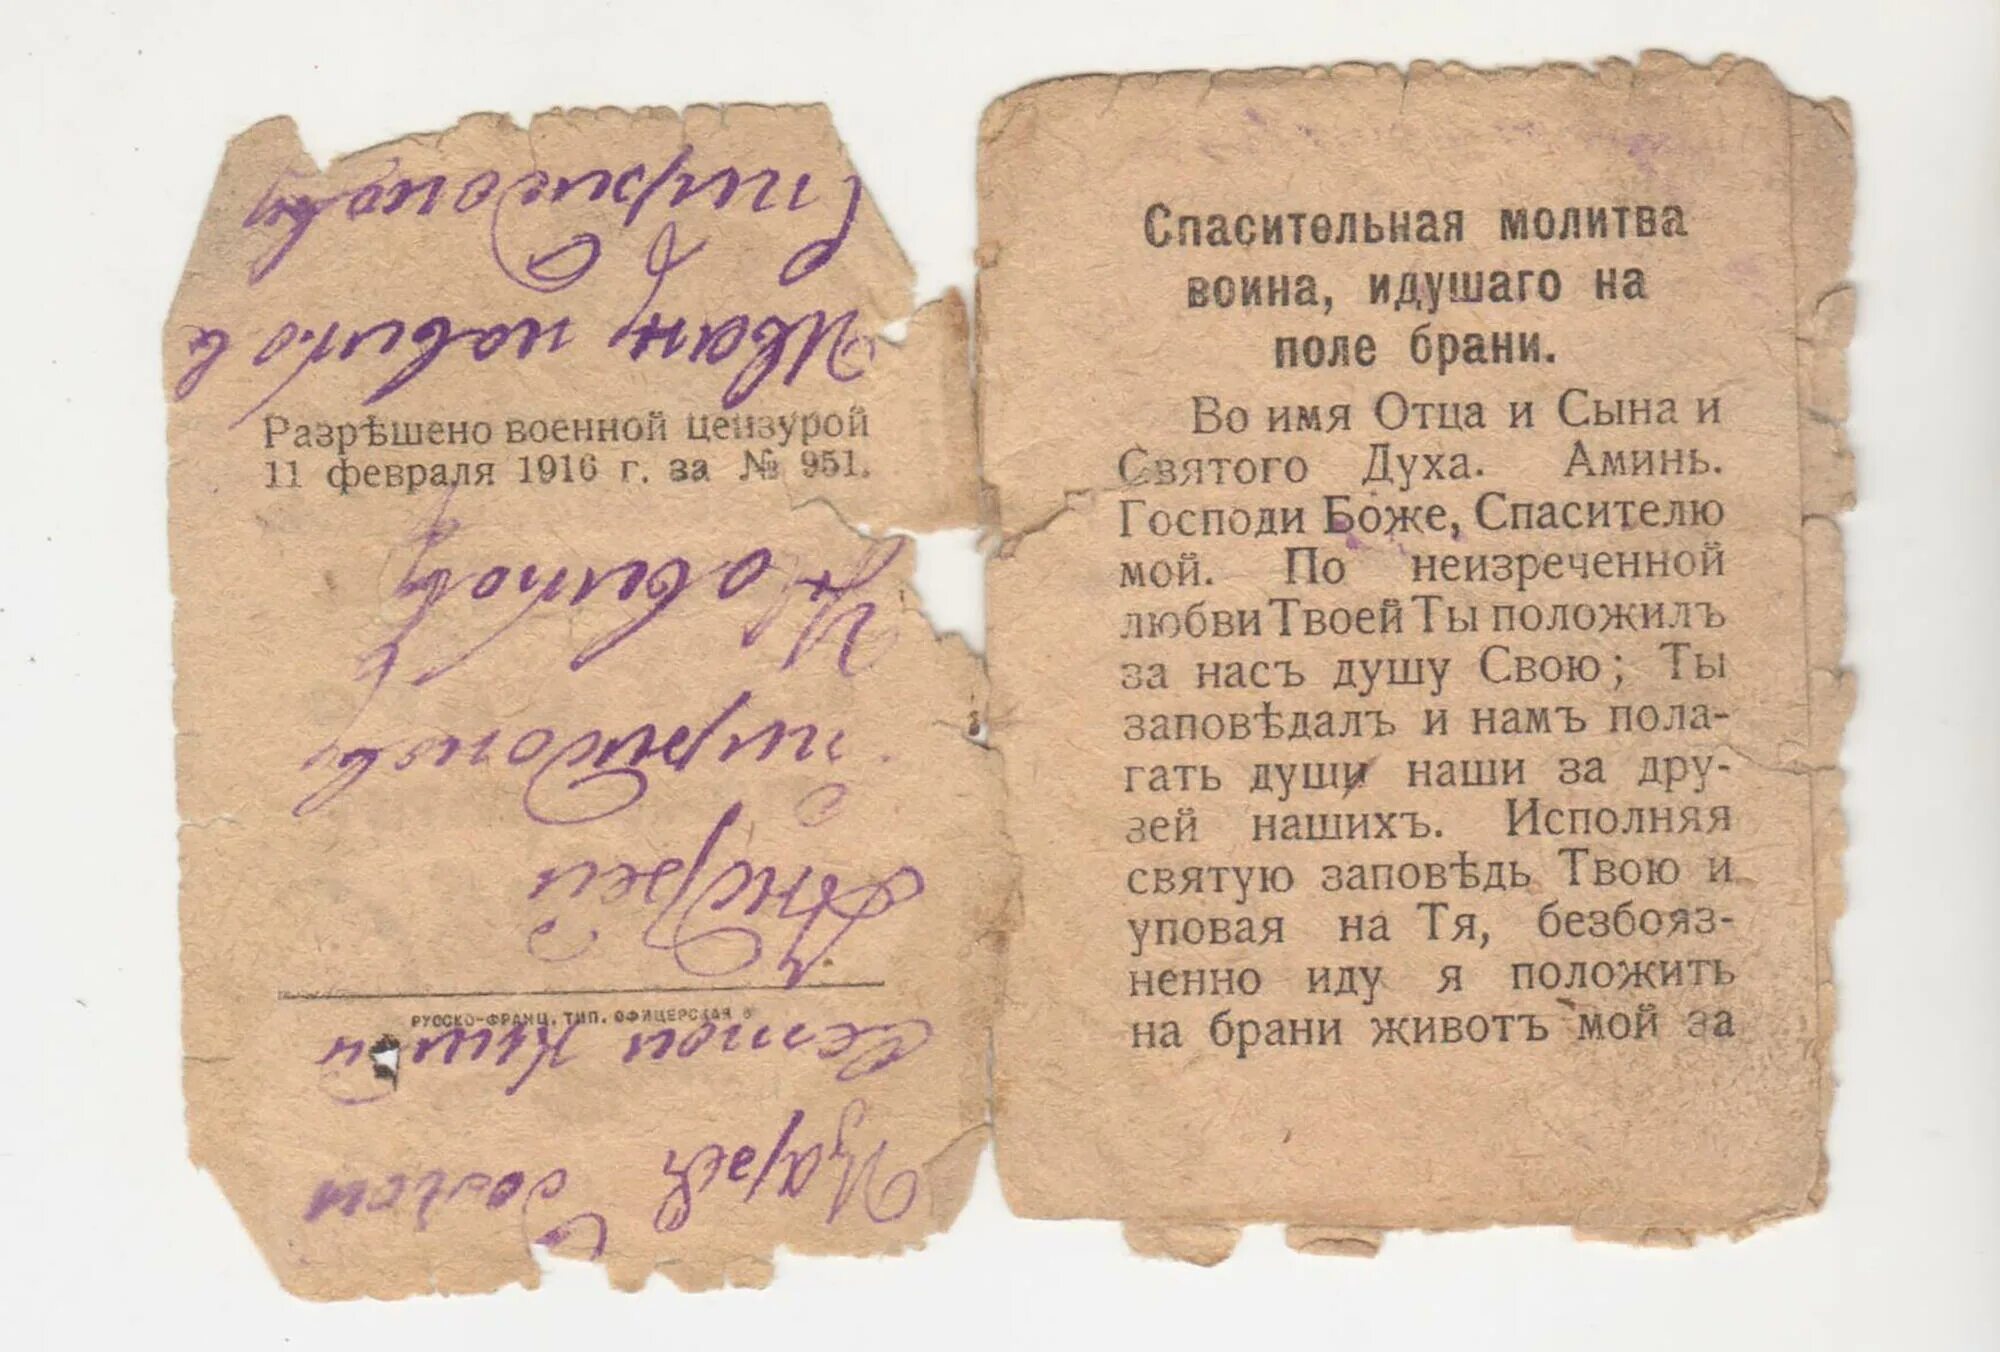 Разрѣшено военной цензурой
11 февраля 1916 г. за № 951.
РУССКО-ФРАНЦ. ТИП. ОФИЦЕРСКАЯ 6
Андрей
Спиридонову
Иван Новиков
Спиридонову
Спасительная молитва
воина, идушаго на
поле брани.
Во имя Отца и Сына и
Святого Духа. Аминь.
Господи Боже, Спасителю
мой. По неизреченной
любви Твоей Ты положилъ
за насъ душу Свою; Ты
заповѣдалъ и намъ пола-
гать души наши за дру-
зей нашихъ. Исполняя
святую заповѣдь Твою и
уповая на Тя, безбояз-
ненно иду я положить
на брани животъ мой за